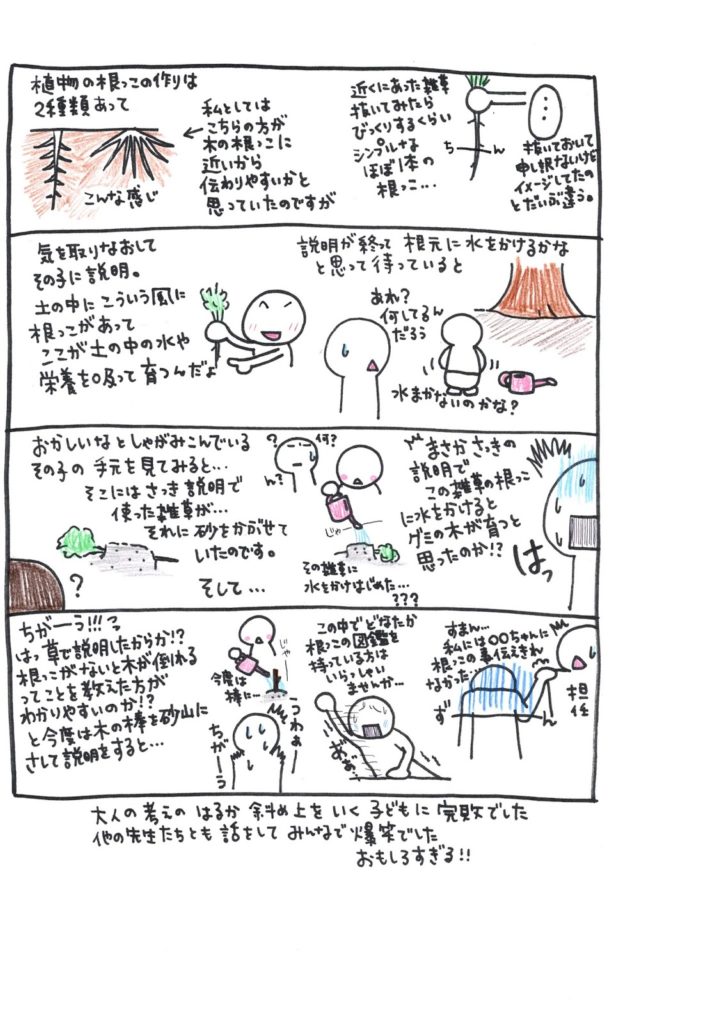 植物の根っこの作りは
2種類あって
こんな感じ
私としては
こちらの方が
木の根っこに
近いから
伝わりやすいかと
思っていたのですが
近くにあった雑草
抜いてみたら
びっくりするくらい
シンプルな
ほぼ1本の
根っこ...
ちーん
...
抜いておいて
申し訳ないけど
イメージしてたの
とだいぶ違う。
気を取りなおして
その子に説明。
土の中にこういう風に
根っこがあって
ここが土の中の水や
栄養を吸って育つんだよ
説明が終って 根元に水をかけるかな
と思って待っていると
あれ?
何してるん
だろう
水まかないのかな?
おかしいなとしゃがみこんでいる
その子の手元を見てみると...
そこにはさっき説明で
使った雑草が...
それに砂をかぶせて
いたのです。
そして...
?
?
ん?
何?
じゃー
その雑草に
水をかけはじめた...
???
まさかさっきの
説明で
この雑草の根っこ
に水をかけると
グミの木が育つと
思ったのか!?
はっ
ちがーう!!!
はっ草で説明したからか!?
根っこがないと木が倒れる
ってことを教えた方が
わかりやすいのか!?
と今度は木の棒を砂山に
さして説明をすると...
じゃー
今度は
棒に...
つわぁー
ちがーう
この中でどなたか
根っこの図鑑を
持っている方は
いらっしゃい
ませんか...
すまん...
私には〇〇ちゃんに
根っこの事伝えきれ
なかった...
ずーん
担任
大人の考えの はるか 斜め上を いく 子どもに 完敗でした
他の先生たちとも 話をして みんなで 爆笑でした
おもしろすぎる!!